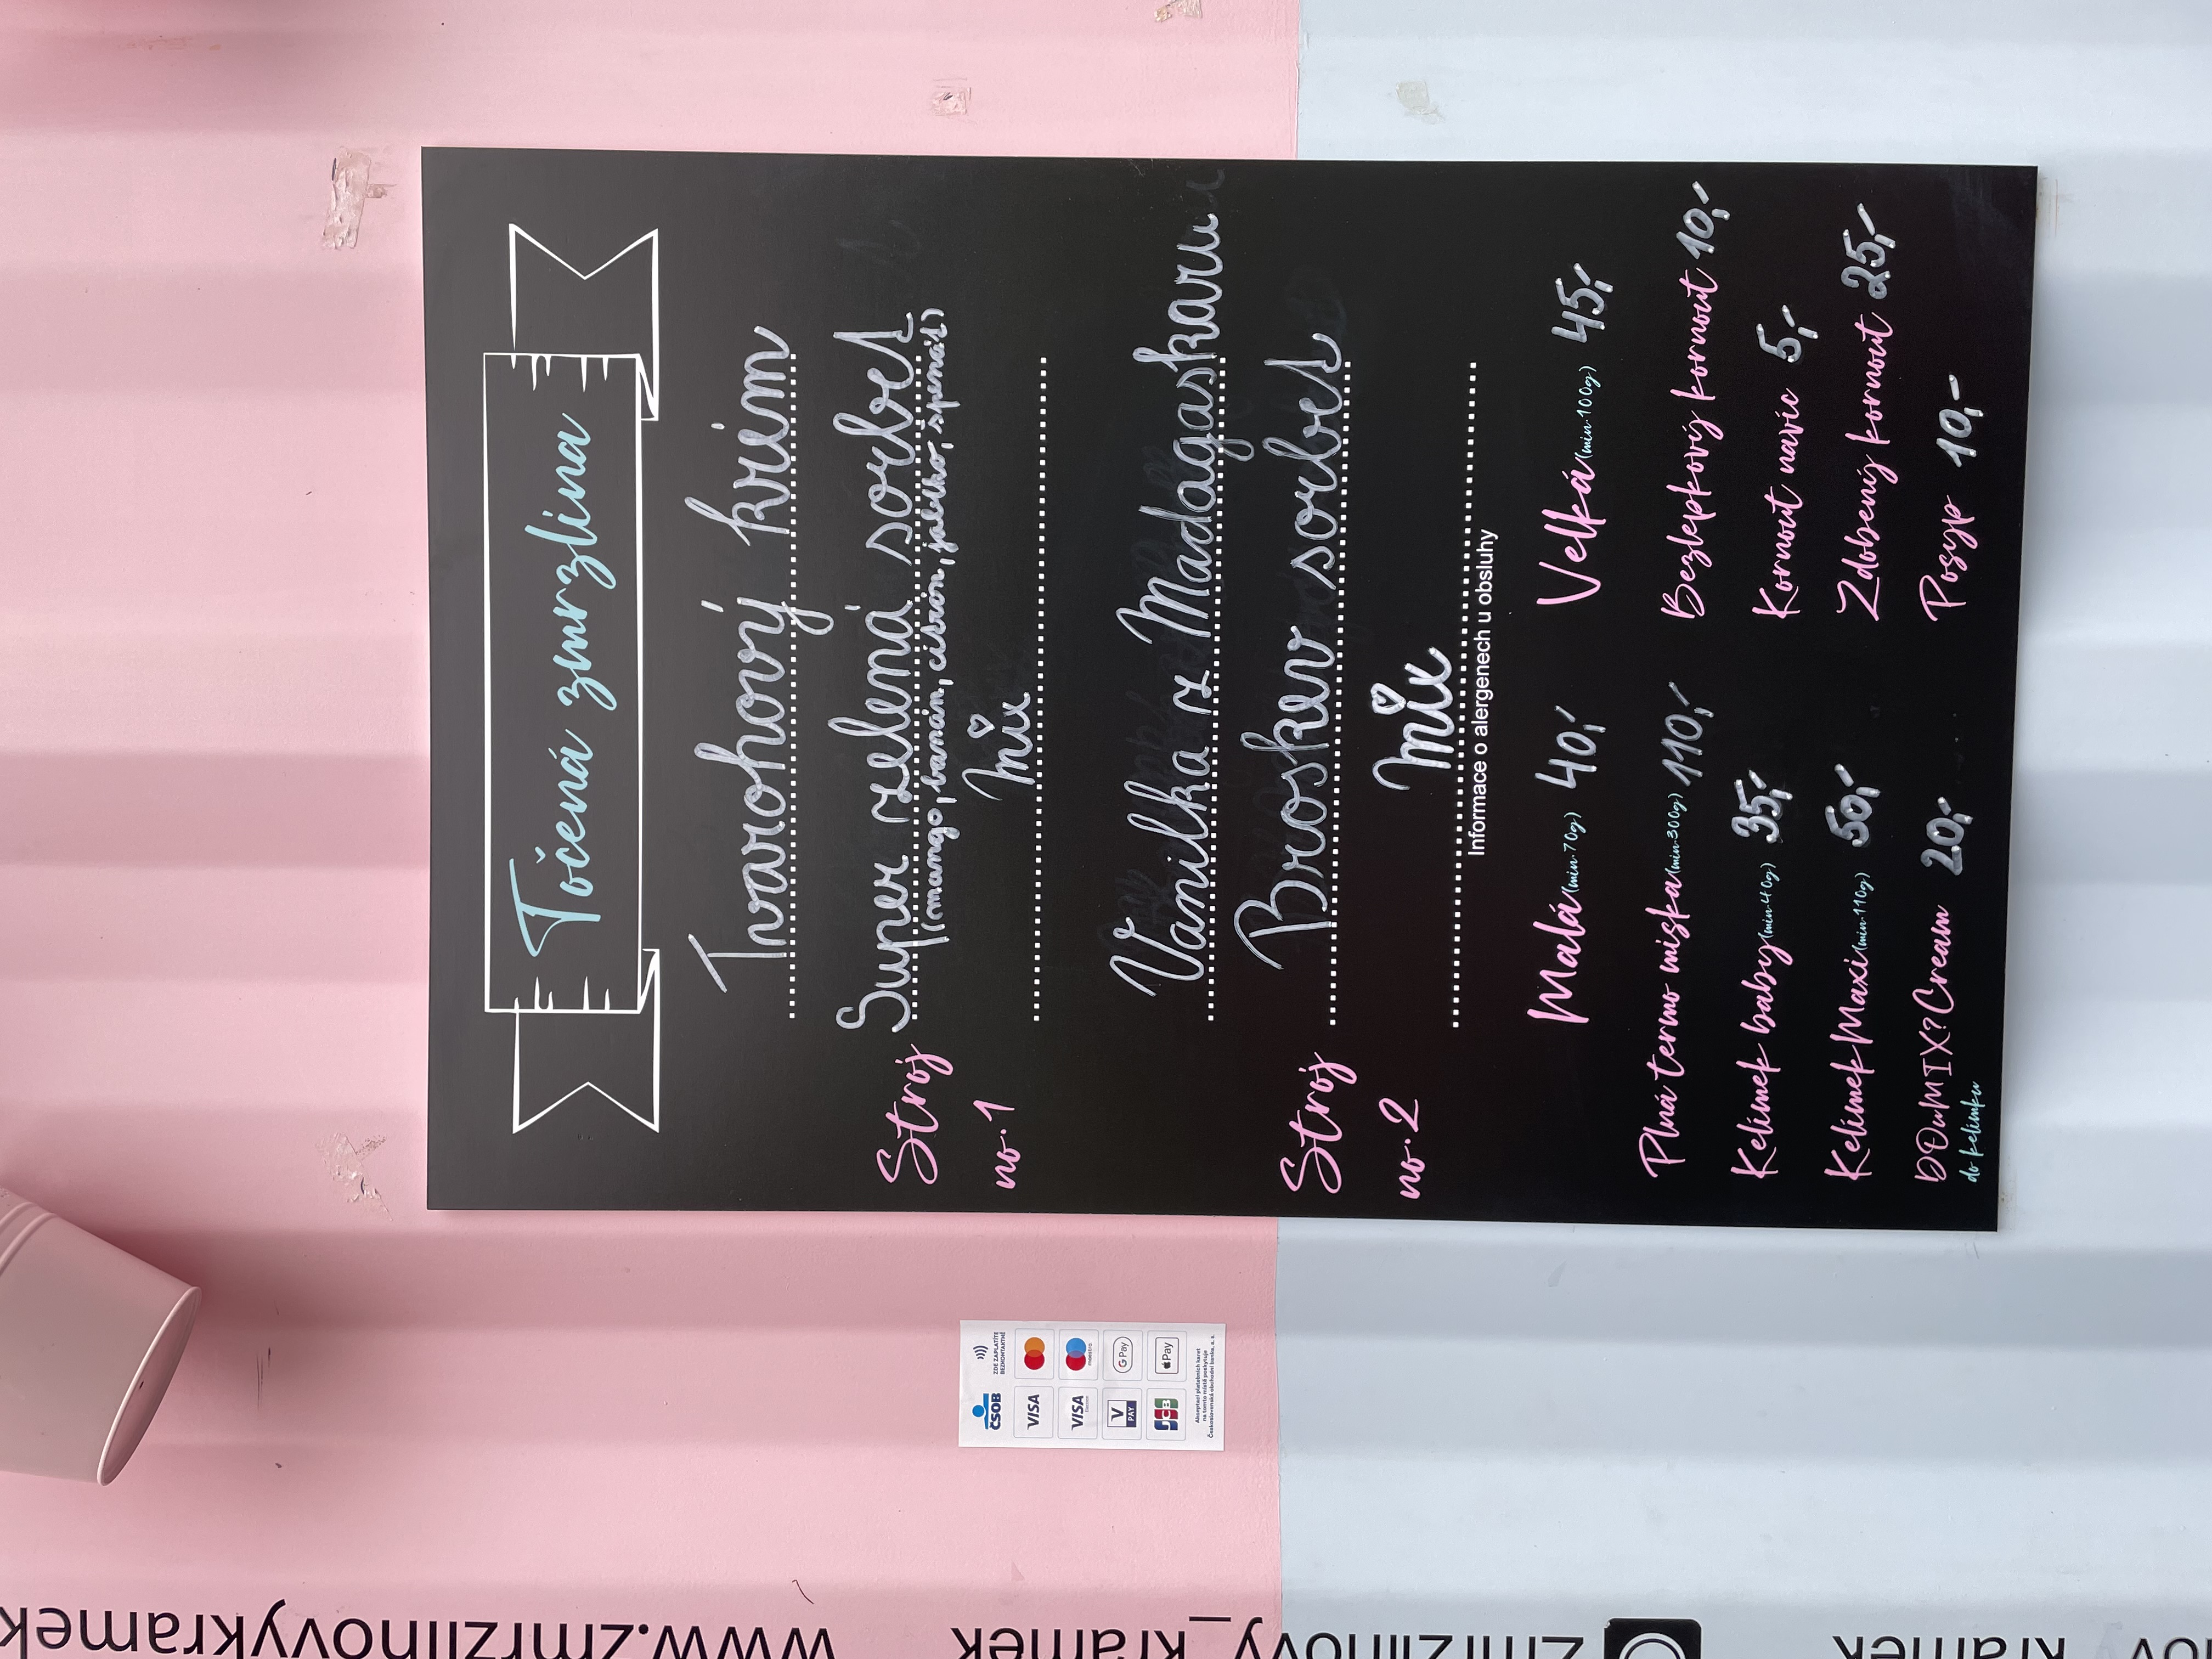 Točená zmrzlina
Stroj
no. 1
Tvarohový krém
Super zelená sorbet
(mango, banán, citrón, jablko, špenát)
mix
Stroj
no. 2
Vanilka z Madagaskaru
Broskev sorbet
mix
Informace o alergenech u obsluhy
Malá (min. 70g) 40,-
Velká (min. 100g) 45,-
Plná termo miska (min. 300g) 110,-
Bezlepkový kornout 10,-
Kelímek baby (min. 40g) 35,-
Kornout navíc 5,-
Kelímek Maxi (min. 110g) 50,-
Zdobený kornout 25,-
DOuMIX?Cream 20,-
do kelímku
Posyp 10,-
ČSOB
ZDE ZAPLATÍTE
BEZKONTAKTNĚ
VISA
VISA
Electron
maestro
V PAY
G Pay
JCB
Pay
Akceptaci platebních karet
na tomto místě poskytuje
Československá obchodní banka, a. s.
www.zmrzlinovykramek
zmrzlinovy_kramek
kramek